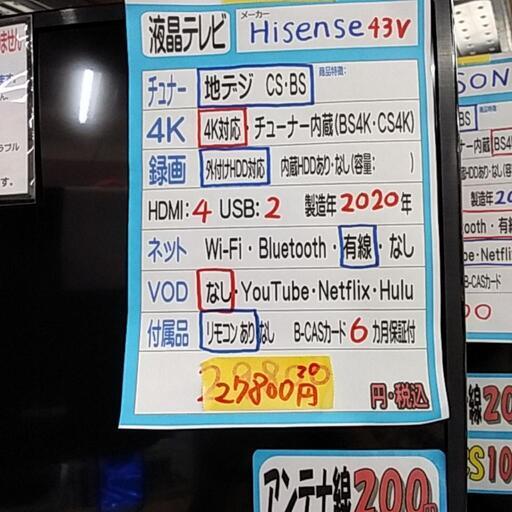 液晶テレビ
メーカー
Hisense 43V
チュナー 地デジ CS・BS
商品特徴:
4K 4K対応・チューナー内蔵(BS4K・CS4K)
録画 外付けHDD対応 内蔵HDDあり・なし(容量: )
HDMI:4 USB:2 製造年2020年
ネット Wi-Fi・Bluetooth・有線・なし
VOD なし・YouTube・Netflix・Hulu
付属品 リモコンあり なし B-CASカード 6カ月保証付
27800円
円・税込
アンテナ線200円
SON
BS
製造年20
ooth・有
be・Netfli
B-CASカード
線20
CS10
ません
ラブル
す。